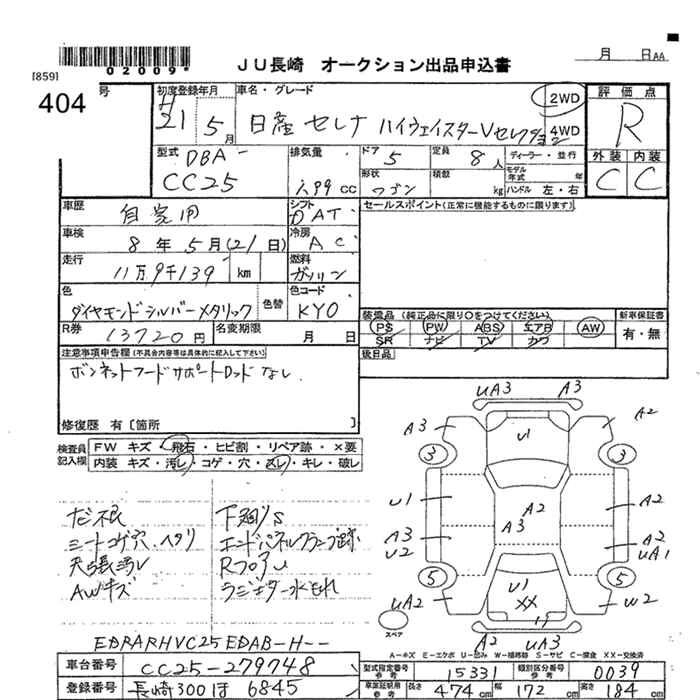 02009*
JU長崎 オークション出品申込書
月 日 AA
[859]
404 号
初度登録年月 車名・グレード 評価点
H 21 5月 日産 セレナ ハイウェイスターVセレクション 2WD 4WD R
型式 DBA- CC25
排気量 1,99 cc
ドア 5 定員 8人 ディーラー・並行
形状 ワゴン 積数 kg モデル年式 年 ハンドル 左・右
外装 内装
C C
車歴 自家用 シフト DAT セールスポイント(正常に機能するものに限ります)
車検 8年 5月(21日) 冷房 AC
走行 11万9千139 km 燃料 ガソリン
色 ダイヤモンドシルバーメタリック 色替 色コード KY0
R券 13720円 名変期限 月 日
装備品(純正品に限り○をつけてください) 新車保証書
PS PW ABS エアB AW 有・無
SR ナビ TV カワ
後日品
注意事項申告欄(不具合内容等は具体的に記入して下さい)
ボンネットフードサポートロッドなし
修復歴 有〔箇所 〕
検査員記入欄
FW キズ・飛石・ヒビ割・リペア跡・×要
内装 キズ・汚レ・コゲ・穴・スレ・キレ・破レ
下廻りS
シートコゲ穴、ヘタリ エンドパネルクランプ跡
天張汚レ RフロアU
AWキズ ラジエター水もれ
UA3 A3
A3 U1 A2
3 3
U1 A2 A2
A3 A3 A2
U2 UA1
5 U1 5
UA2 XX W2
スペア
A2 UA3
A-キズ E-エクボ U-凹み W-補修跡 S-サビ C-腐食 XX-交換済
EDRARHVC25EDAB-H--
車台番号 CC25-279748 型式指定番号 参考 15331 類別区分番号 参考 0039
登録番号 長崎300ほ 6845 長さ 参考 474cm 幅 172cm 高さ 184cm